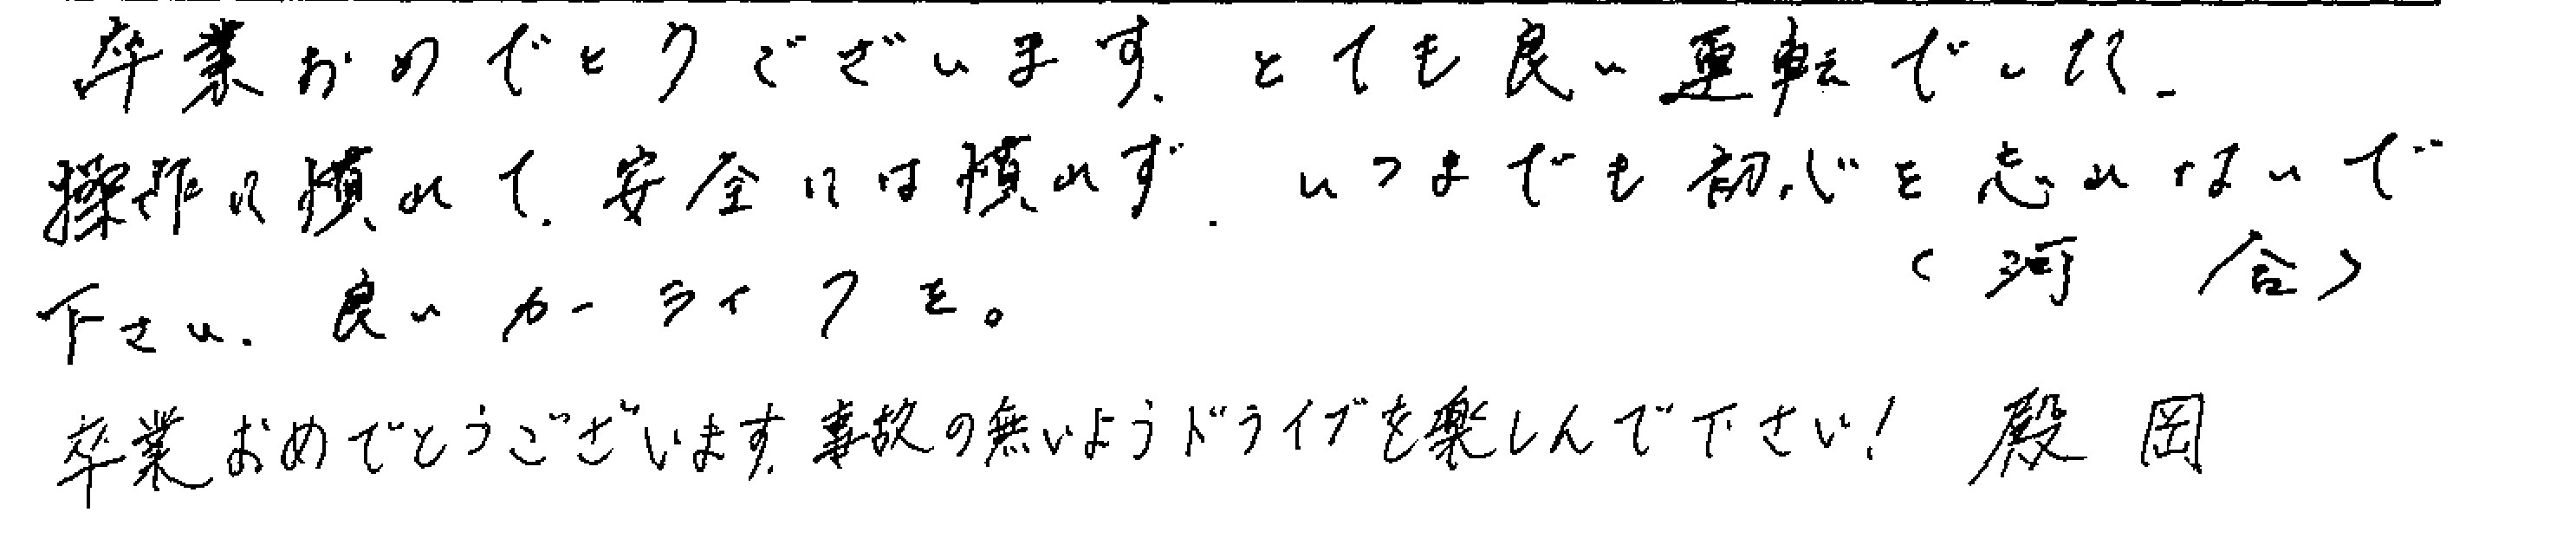 卒業おめでとうございます。とても良い運転でした。
操作に慣れて、安全には慣れず、いつまでも初心を忘れないで
下さい。良いカーライフを。 (河合)
卒業おめでとうございます。事故の無いようドライブを楽しんで下さい! 殿岡